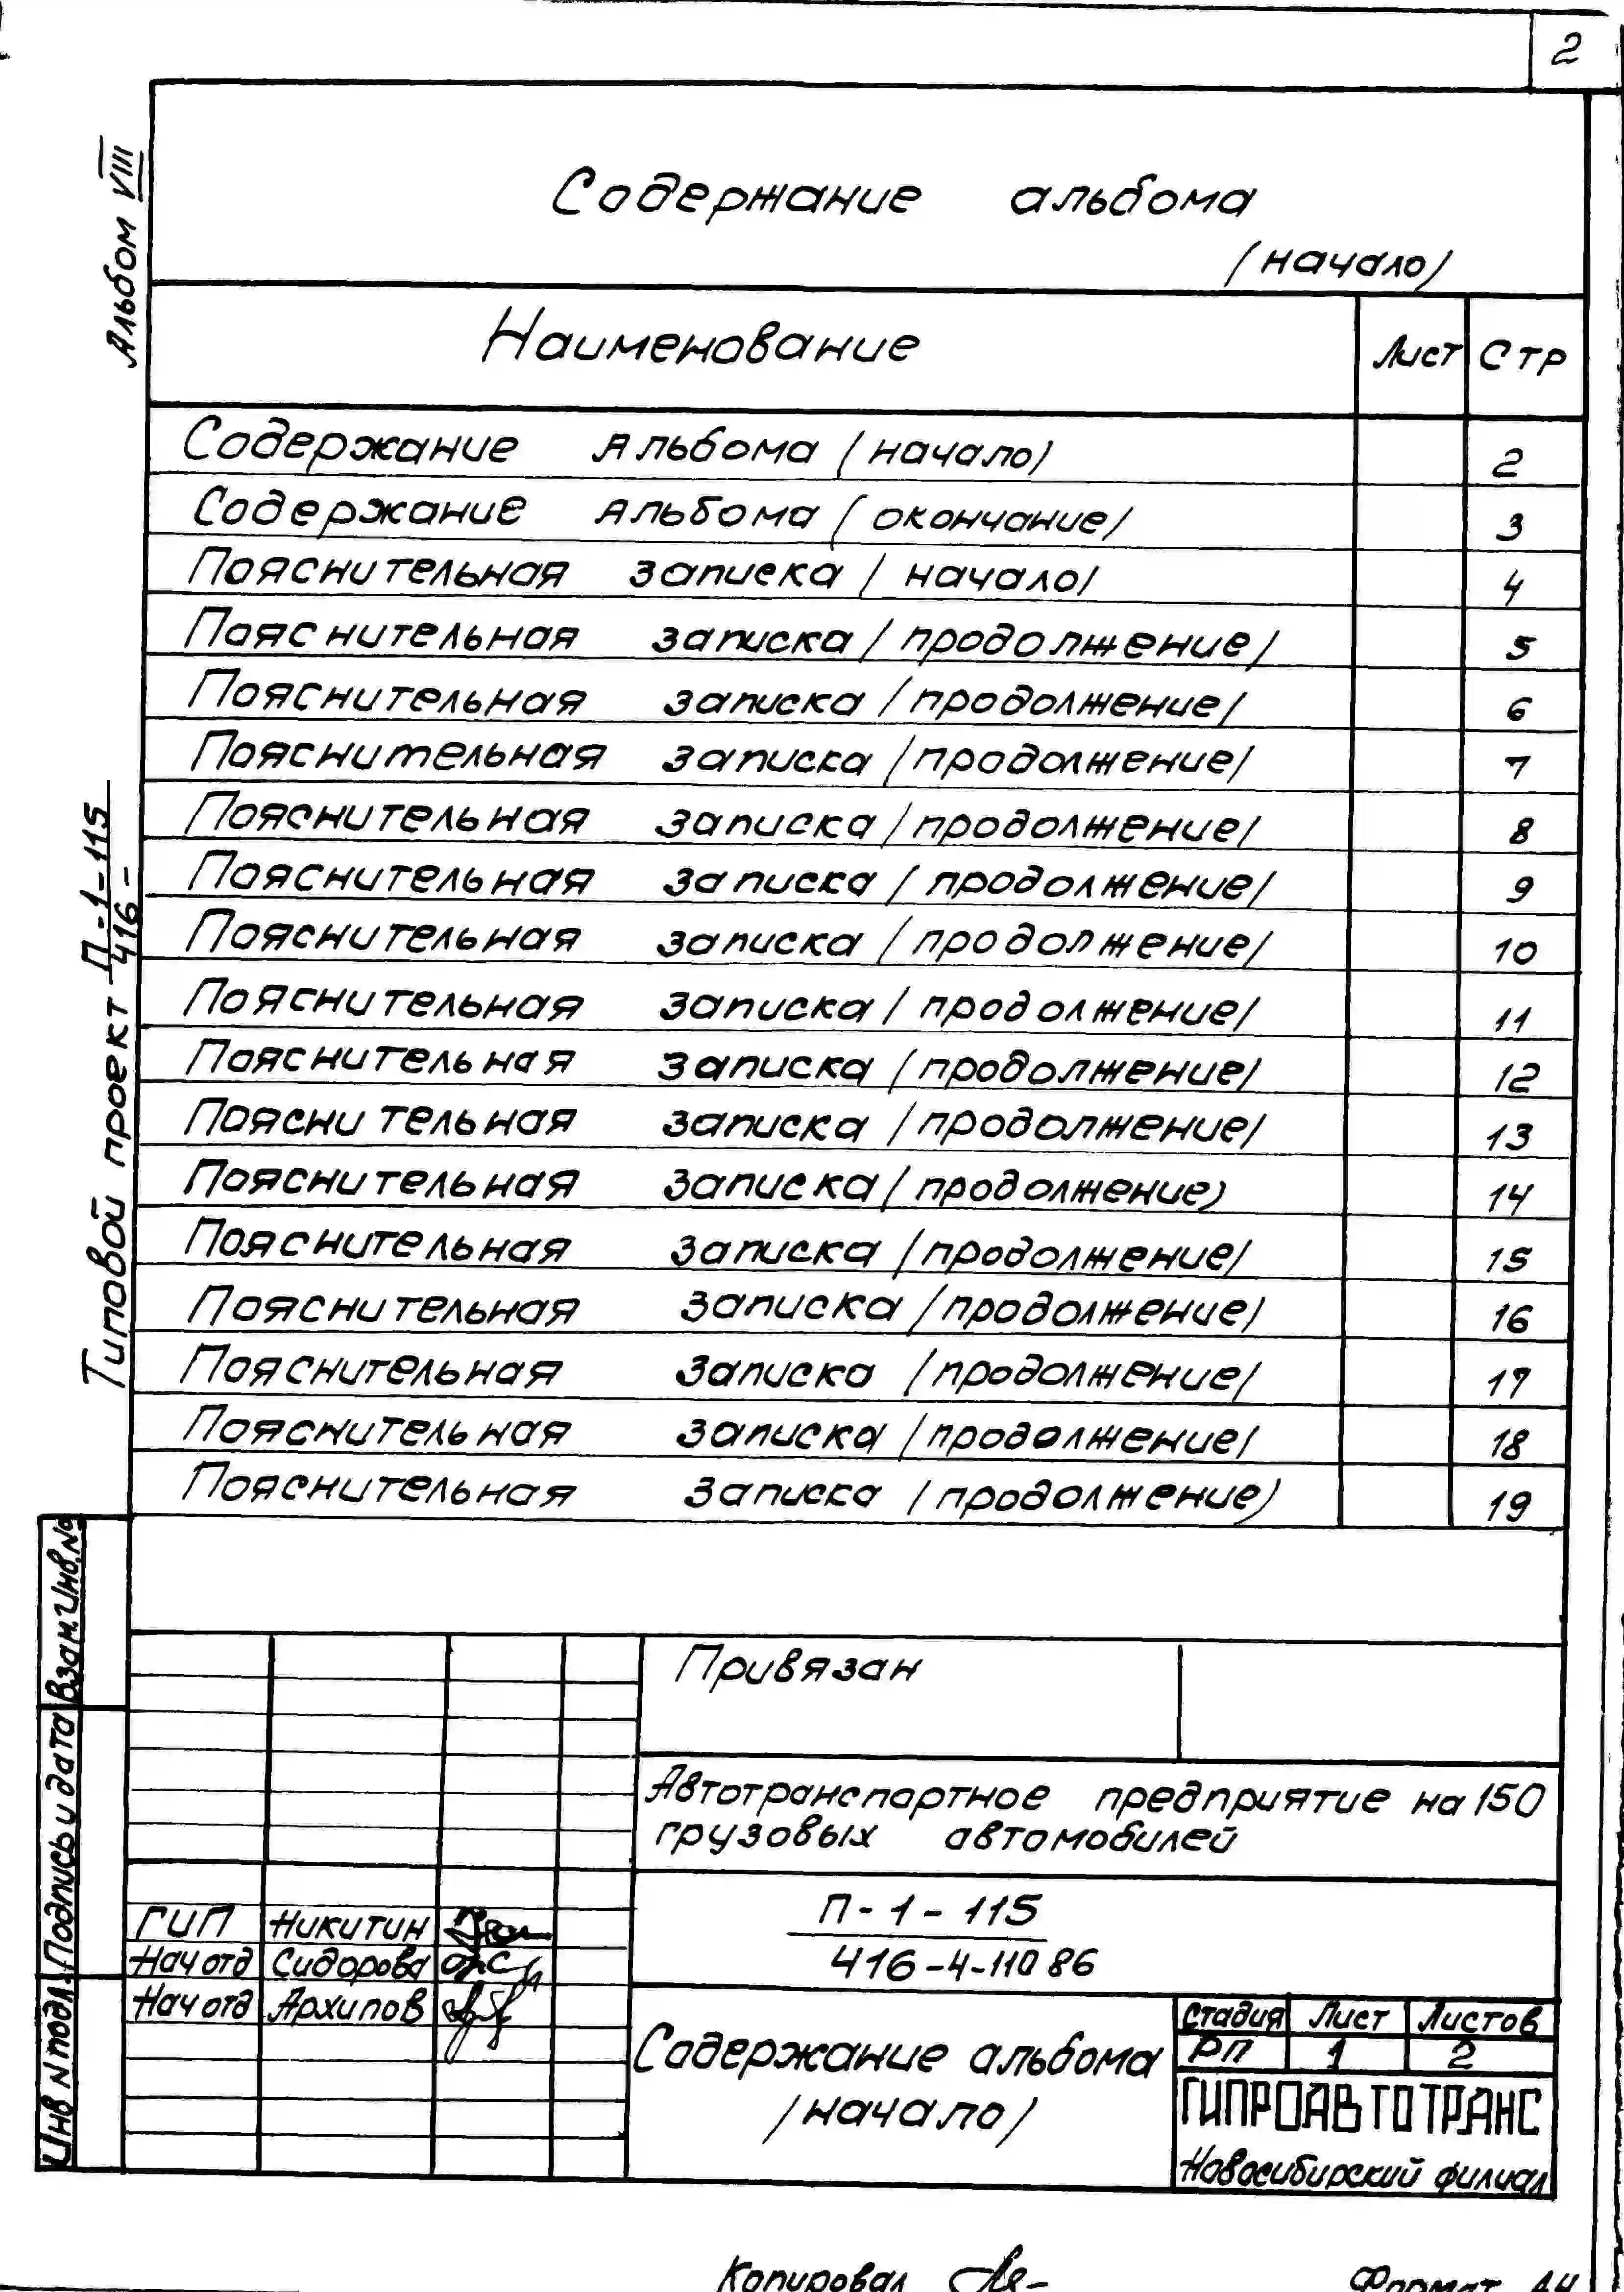 2
Альбом VIII
Содержание альбома
(начало)
Наименование Лист Стр
Содержание альбома (начало) 2
Содержание альбома (окончание) 3
Пояснительная записка / начало/ 4
Пояснительная записка /продолжение/ 5
Пояснительная записка /продолжение/ 6
Пояснительная записка /продолжение/ 7
Пояснительная записка /продолжение/ 8
Пояснительная записка /продолжение/ 9
Пояснительная записка /продолжение/ 10
Пояснительная записка /продолжение/ 11
Пояснительная записка /продолжение/ 12
Пояснительная записка /продолжение/ 13
Пояснительная записка /продолжение) 14
Пояснительная записка /продолжение/ 15
Пояснительная записка /продолжение) 16
Пояснительная записка /продолжение/ 17
Пояснительная записка /продолжение/ 18
Пояснительная записка /продолжение) 19
Типовой проект П-1-115
416-
Взам.Инв.№
Подпись и дата
Инв N подл.
Привязан
Автотранспортное предприятие на 150
грузовых автомобилей
П-1-115
416-4-110 86
ГИП Никитин
Нач отд Сидорова
Нач отд Архипов
Содержание альбома
/начало/
Стадия Лист Листов
РП 1 2
ГИПРОАВТОТРАНС
Новосибирский филиал
Копировал
Формат А4